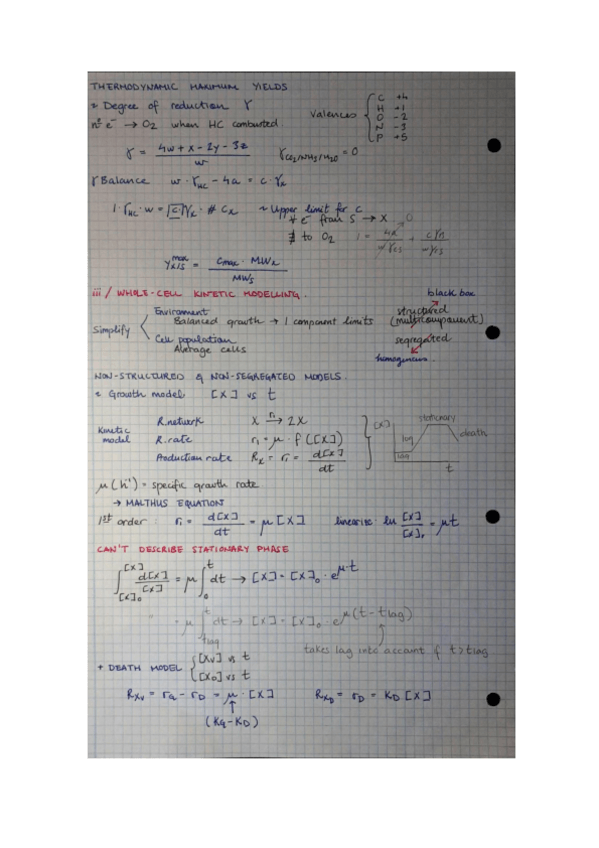 THERMODYNAMIC MAXIMUM YIELDS
~ Degree of reduction γ
nº e⁻ → O₂ when HC combusted.
Valences { C +4
H +1
O -2
N -3
P +5
γ = (4w + x - 2y - 3z) / w
γ CO₂/NH₃/H₂O = 0
γ Balance w · γHC - 4a = c · γx
1 · γHC · w = c · γx · # Cx ~ Upper limit for c
∀ e⁻ from S → X
∄ to O₂
1 = 4a / wγs + cγx / wγs
0
Y max X/S = (Cmax · MWx) / MWs
iii / WHOLE-CELL KINETIC MODELLING.
black box
Simplify
Environment
Balanced growth → 1 component limits
Cell population
Average cells
structured
(multicomponent)
segregated
homogenous.
NON-STRUCTURED & NON-SEGREGATED MODELS.
~ Growth model [X] vs t
Kinetic model
R.network X →r₁ 2X
R.rate r₁ = μ · f([X])
Production rate Rx = r₁ = d[X] / dt
[X]
stationary
log
death
lag
t
μ (h⁻¹) = specific growth rate
→ MALTHUS EQUATION
1st order : r₁ = d[X]/dt = μ [X] linearise: ln [X]/[X]₀ = μt
CAN'T DESCRIBE STATIONARY PHASE
∫[X]₀^[X] d[X]/[X] = μ ∫₀^t dt → [X] = [X]₀ · e^μ·t
" = μ ∫tlag^t dt → [X] = [X]₀ · e^μ(t - tlag)
takes lag into account if t > tlag
+ DEATH MODEL { [Xv] vs t
[XD] vs t
RXv = rG - rD = μ · [X]
RXD = rD = KD [X]
(KG - KD)